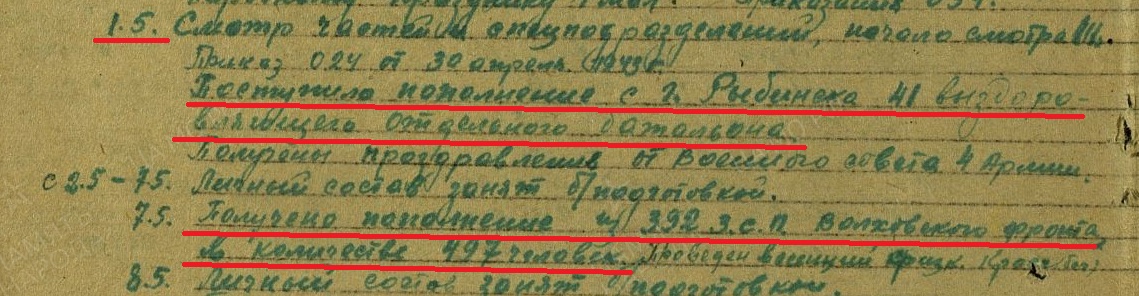 1.5. Смотр частей и спецподразделений, начало смотра
Приказ 024 от 30 апреля 1943 г.
Поступило пополнение с г. Рыбинска 41 выздоро-
вляющего отдельного батальона.
Получены поздравления от Военного совета 4 Армии.
с 2.5 - 7.5. Личный состав занят б/подготовкой.
7.5. Получено пополнение из 392 з.с.п. Волховского фронта
в количестве 497 человек. Проведен
8.5. Личный состав занят б/подготовкой.